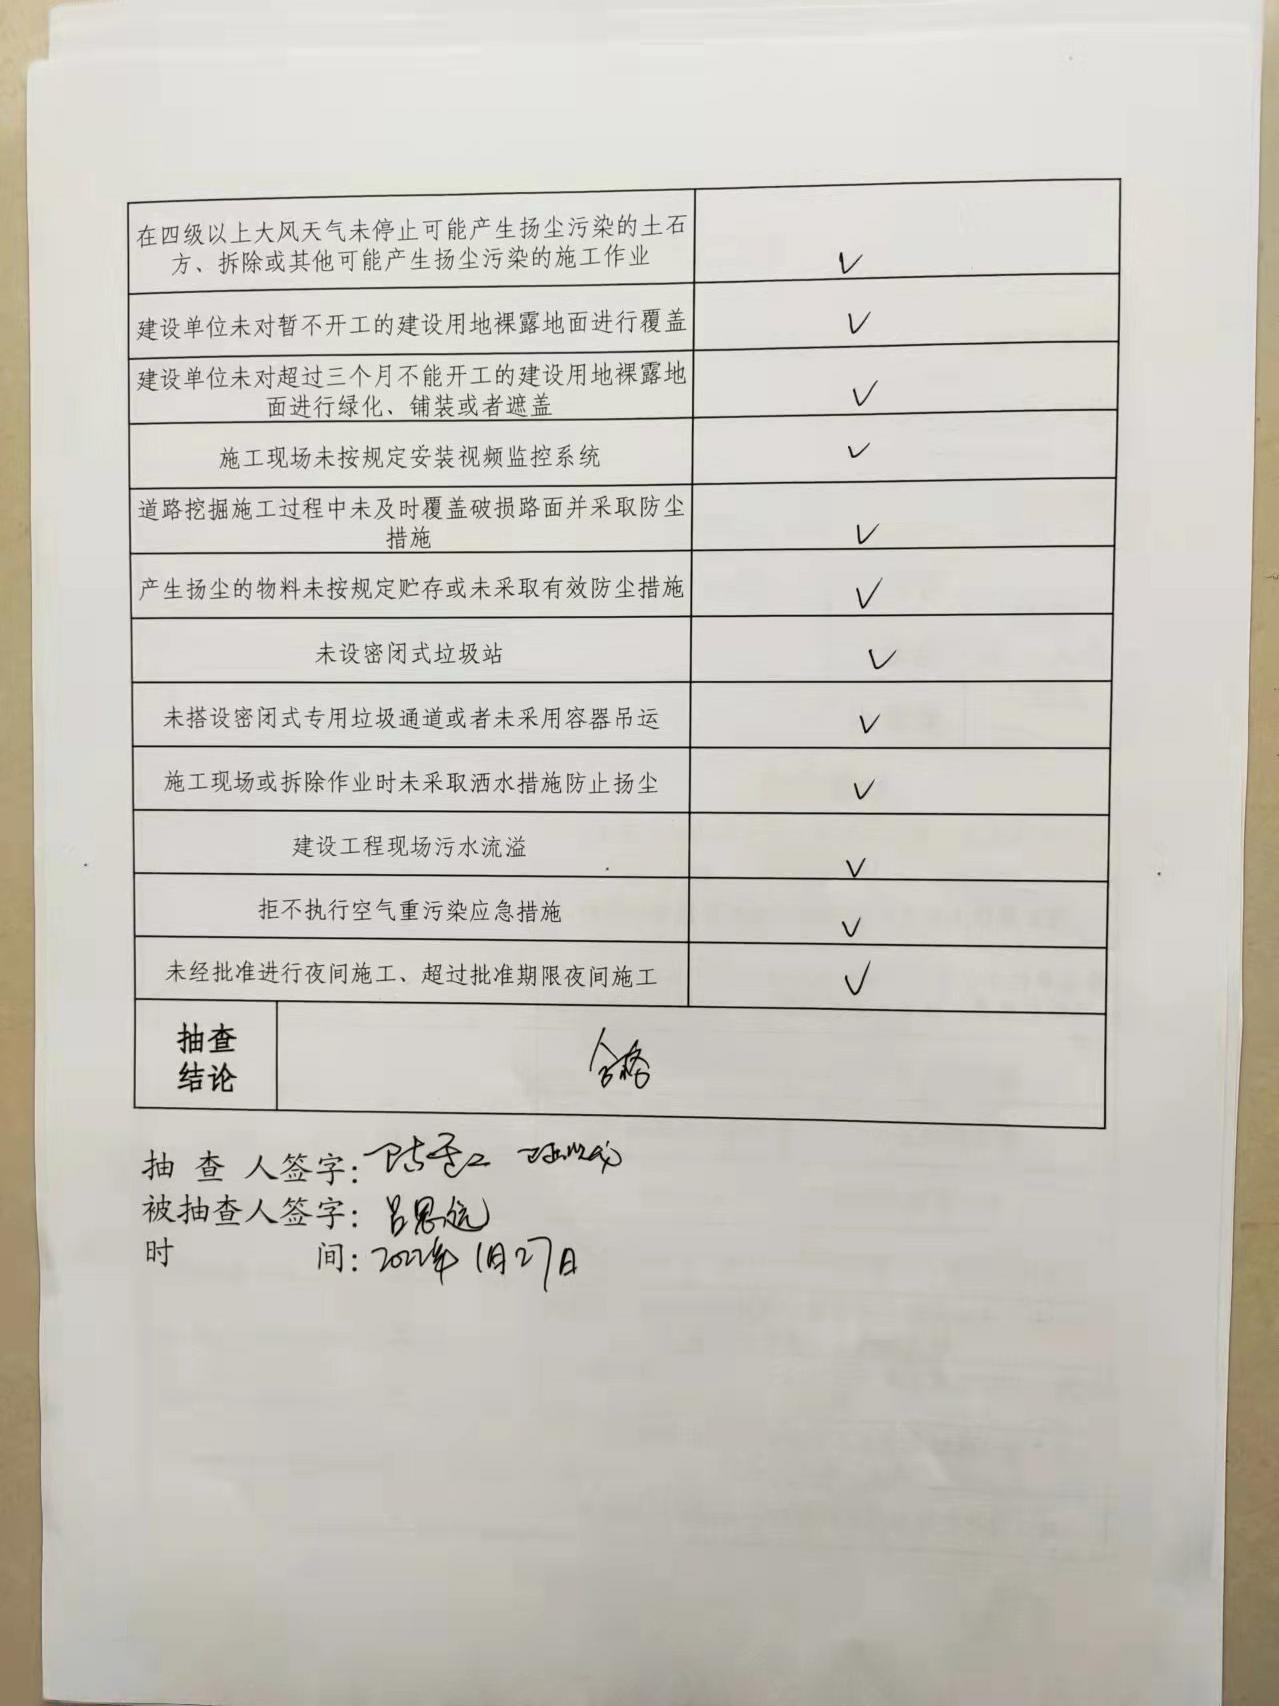 在四级以上大风天气未停止可能产生扬尘污染的土石
方、拆除或其他可能产生扬尘污染的施工作业 ✓
建设单位未对暂不开工的建设用地裸露地面进行覆盖 ✓
建设单位未对超过三个月不能开工的建设用地裸露地
面进行绿化、铺装或者遮盖 ✓
施工现场未按规定安装视频监控系统 ✓
道路挖掘施工过程中未及时覆盖破损路面并采取防尘
措施 ✓
产生扬尘的物料未按规定贮存或未采取有效防尘措施 ✓
未设密闭式垃圾站 ✓
未搭设密闭式专用垃圾通道或者未采用容器吊运 ✓
施工现场或拆除作业时未采取洒水措施防止扬尘 ✓
建设工程现场污水流溢 ✓
拒不执行空气重污染应急措施 ✓
未经批准进行夜间施工、超过批准期限夜间施工 ✓
抽查
结论
合格
抽查人签字：
被抽查人签字：吕思远
时间：2022年1月27日